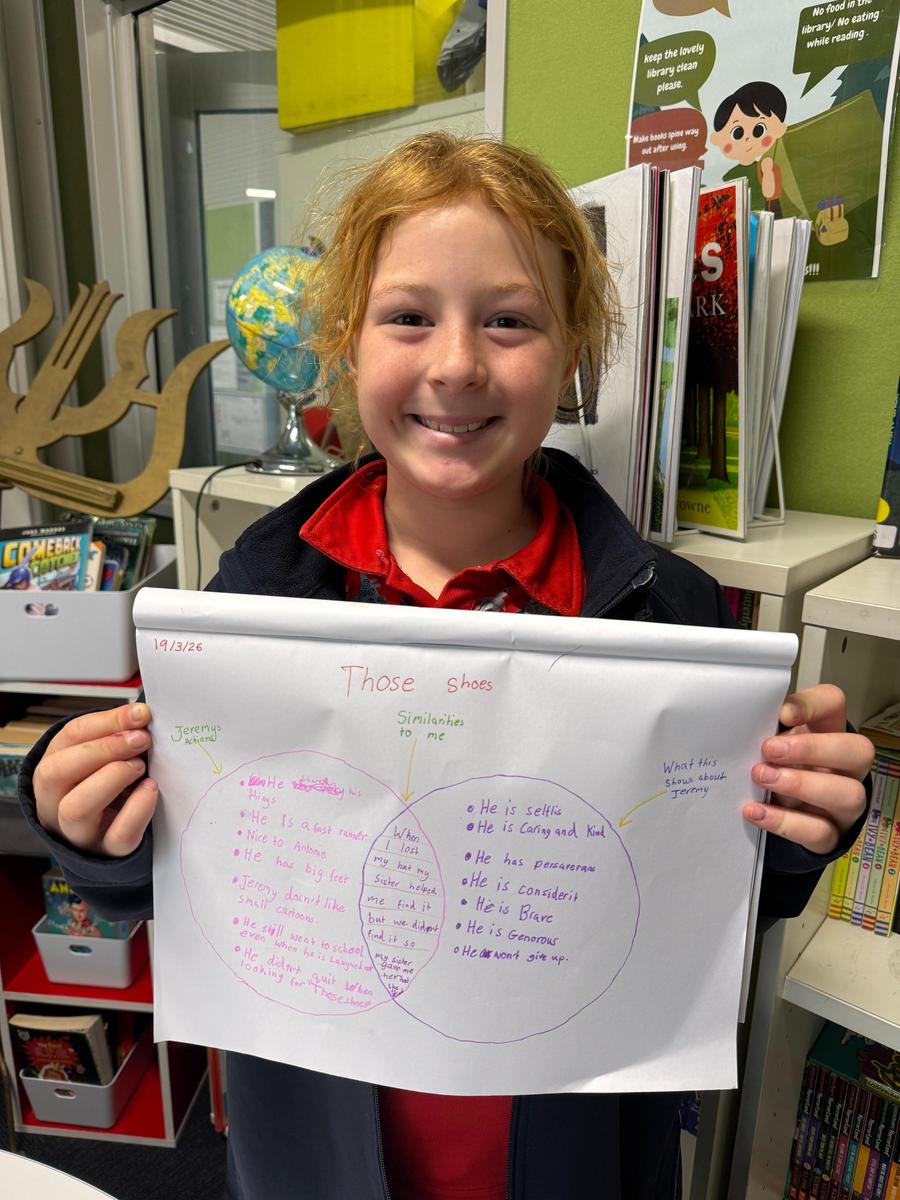 No food in the
library/ No eating
while reading .
keep the lovely
library clean
please.
Make books spine way
out after using.
!!!
S
ARK
owne
COMEBACK
19/3/26
Those shoes
Jeremys
Actions
Similarities
to me
What this
shows about
Jeremy
• He his
things
• He is a fast runner
• Nice to Antonio
• He has big feet
• Jeremy doesn't like
small cartoons.
• He still went to school
even when he is laughed at
• He didn't quit when
looking for Those shoes
When
I lost
my hat my
Sister helped
me find it
but we didn't
find it so
my sister
gave me
her hat
• He is selflis
• He is Caring and Kind
• He has perseverens
• He is considerit
• He is Brave
• He is Genorous
• He won't give up.